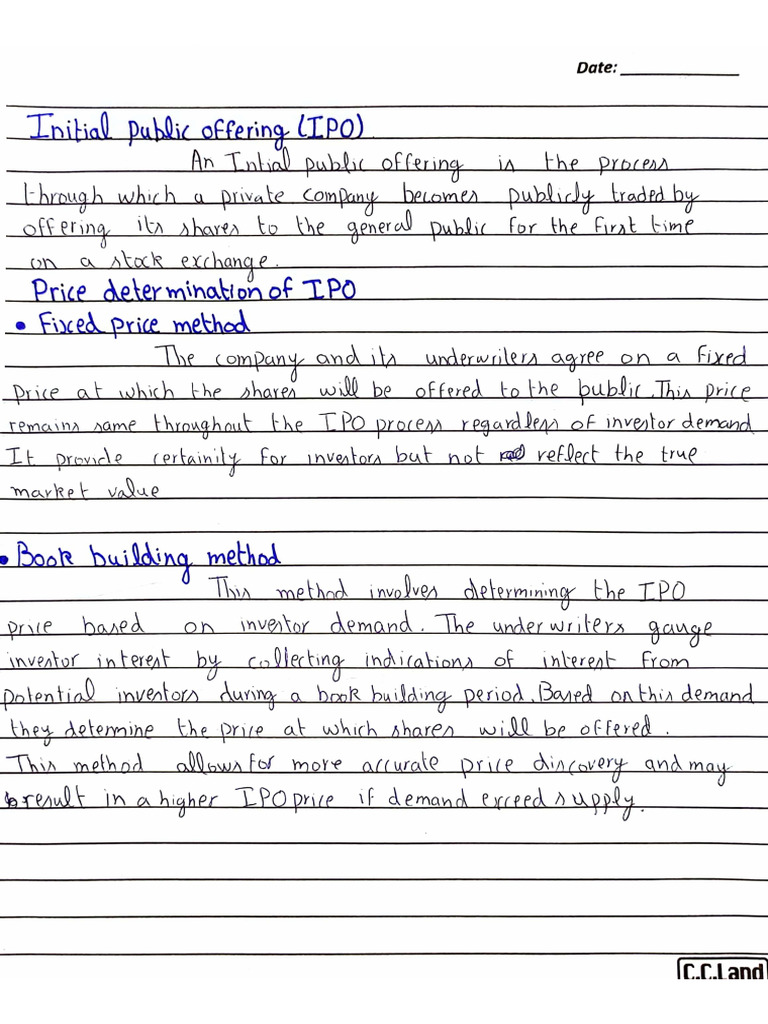 Date:
Initial public offering (IPO)
An Intial public offering is the process
through which a private company becomes publicly traded by
offering its shares to the general public for the first time
on a stock exchange.
Price determination of IPO
• Fixed price method
The company and its underwriters agree on a fixed
price at which the shares will be offered to the public. This price
remains same throughout the IPO process regardless of investor demand
It provide certainity for investors but not reflect the true
market value
• Book building method
This method involves determining the IPO
price based on investor demand. The underwriters gauge
investor interest by collecting indications of interest from
potential investors during a book building period. Based on this demand
they determine the price at which shares will be offered.
This method allows for more accurate price discovery and may
result in a higher IPO price if demand exceed supply.
C.C.Land